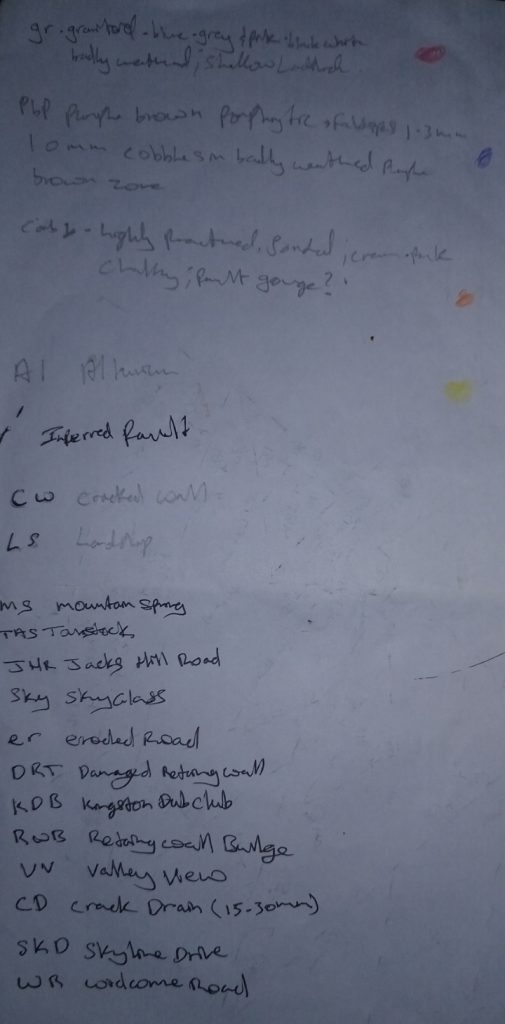 gr. granitoid - blue - grey & pink - black white
badly weathered; shallow Landslide
PbP Purple brown Porphyritic 1-3mm
10mm cobbles in badly weathered Purple
brown zone
highly fractured, ; cream-pink
chalky; fault gouge?
Al Alluvium
Inferred fault
CW cracked wall
LS Landslip
MS mountain spring
TAS Tavistock
JHR Jacks Hill Road
Sky SkyGlass
er eroded Road
DRT Damaged Retaing wall
KDB Kingston Dub Club
RWB Retaing wall Bulge
VV Valley View
CD crack Drain (15-30mm)
SKD Skyline Drive
WR Road